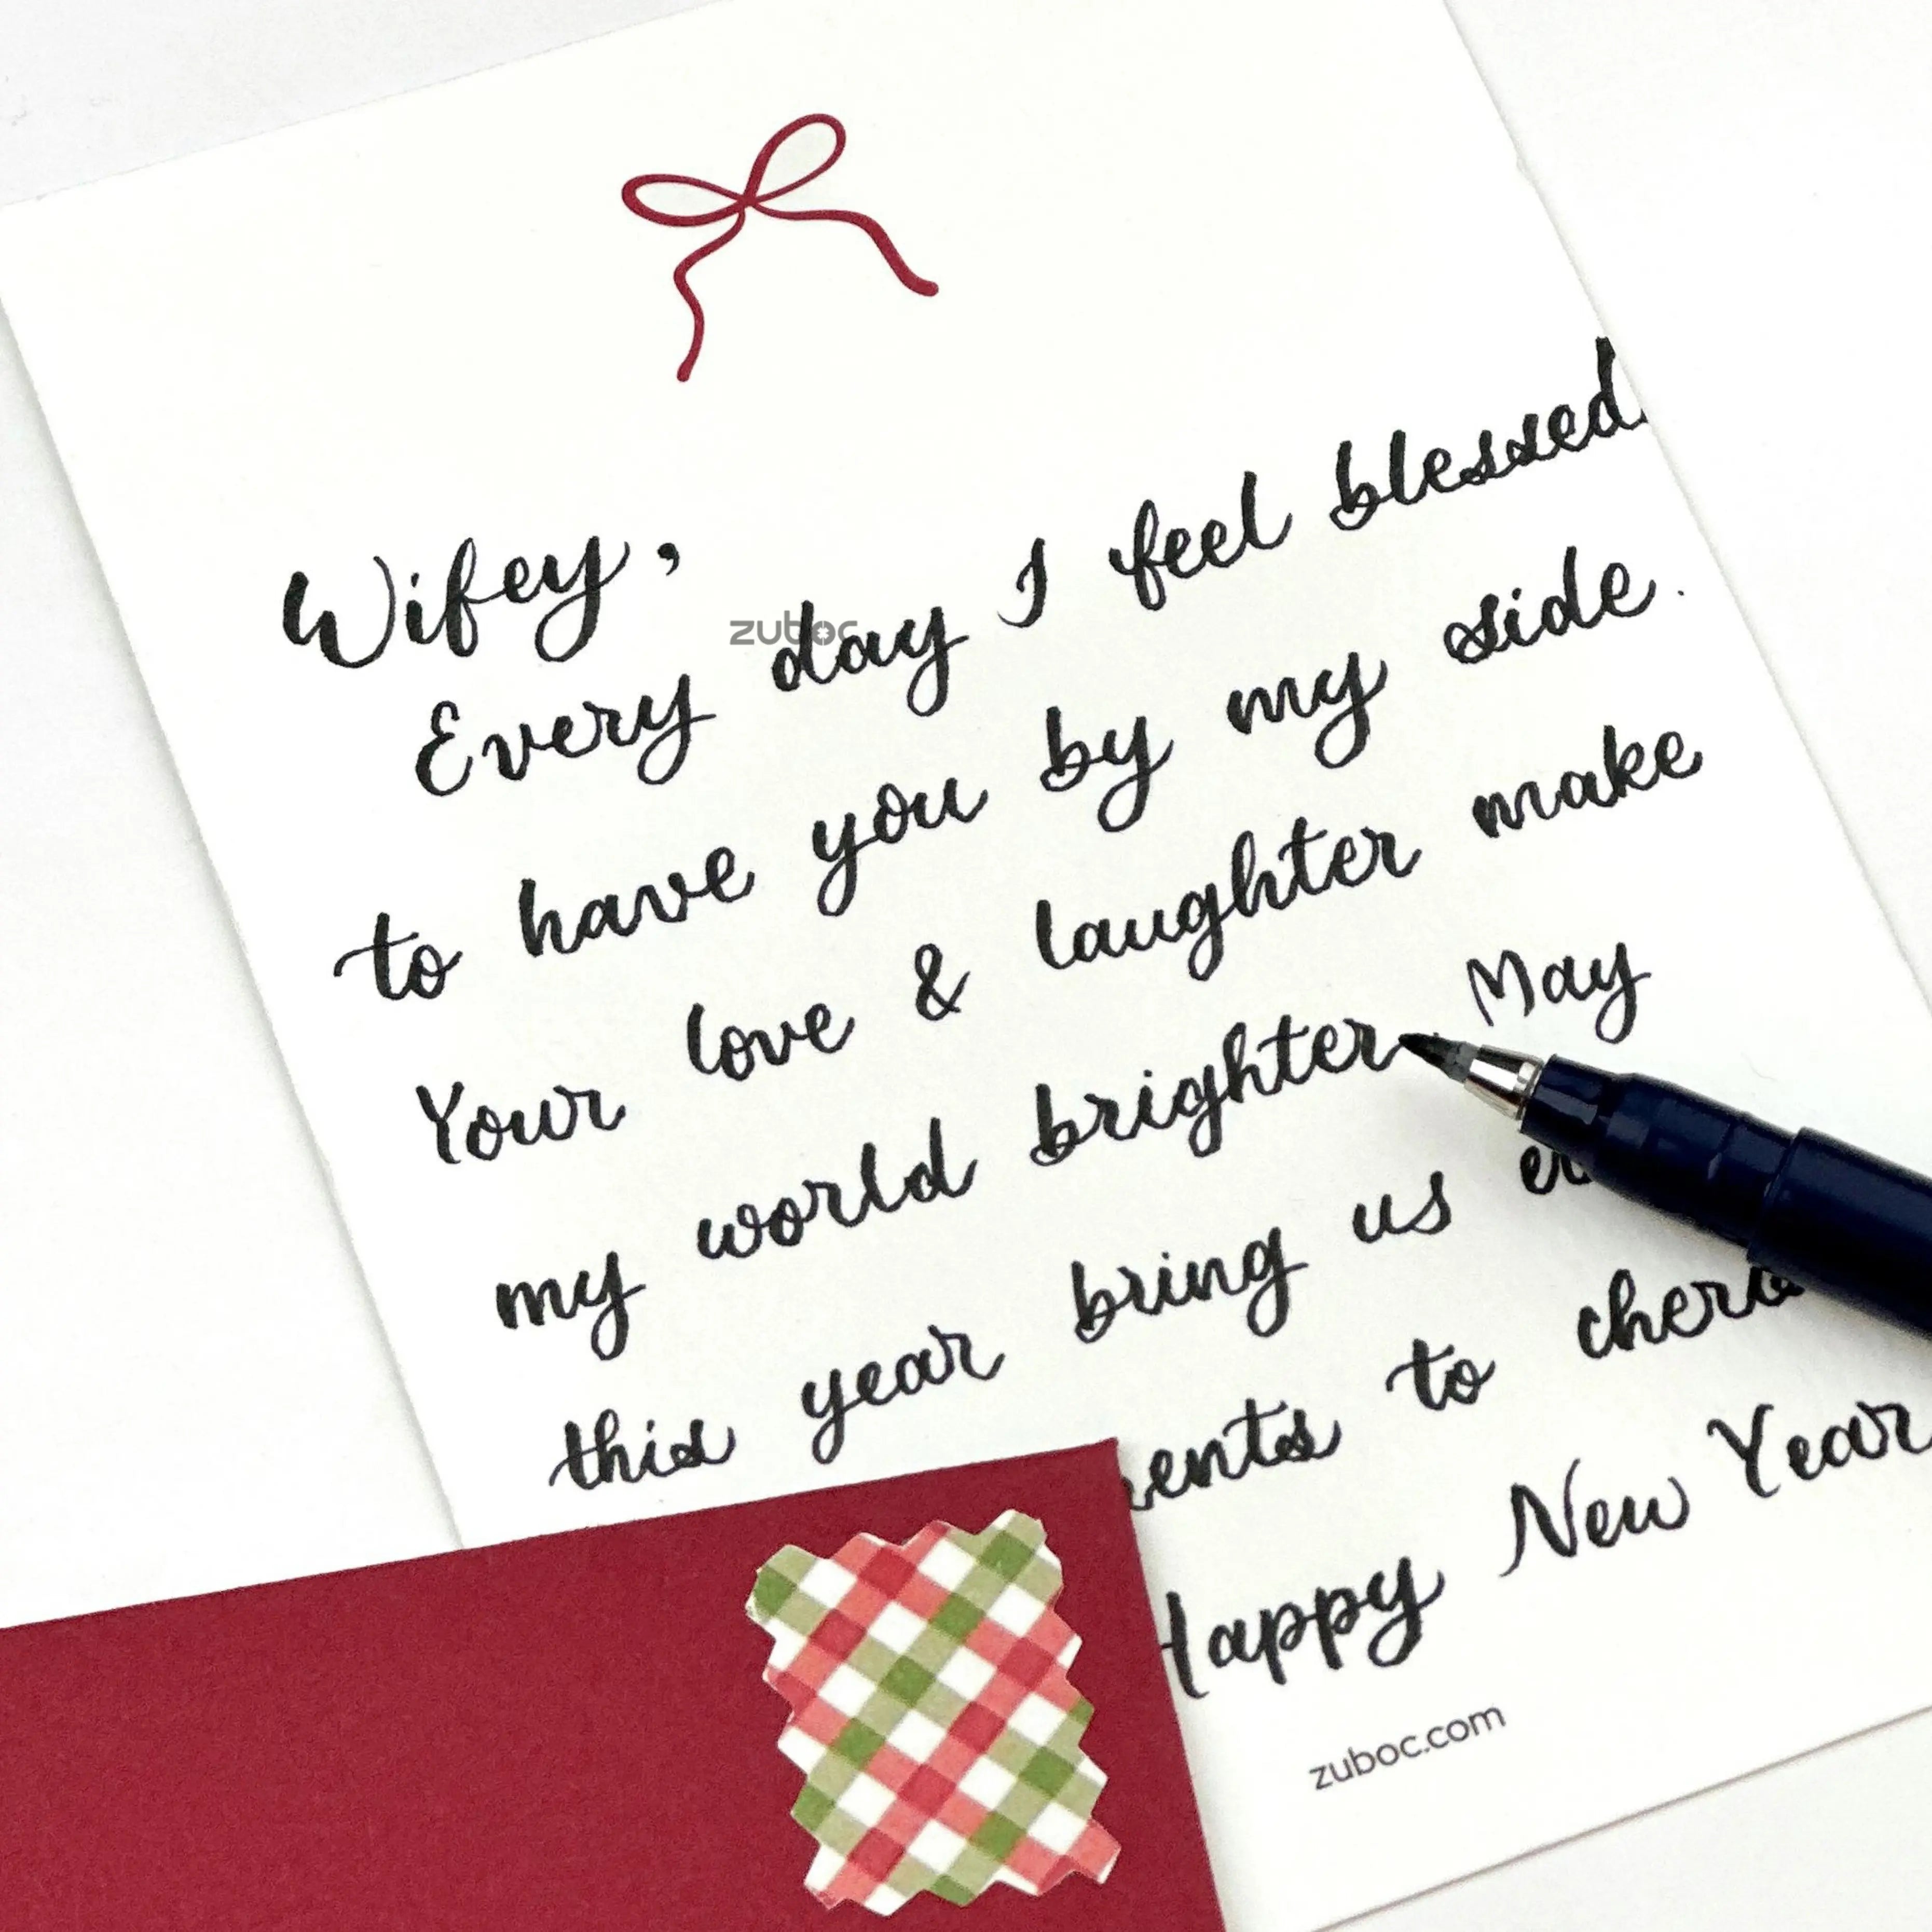 Wifey,
Every day I feel blessed
to have you by my side.
Your love & laughter make
my world brighter May
this year bring us
to
Happy New Year
zuboc.com
zuboc